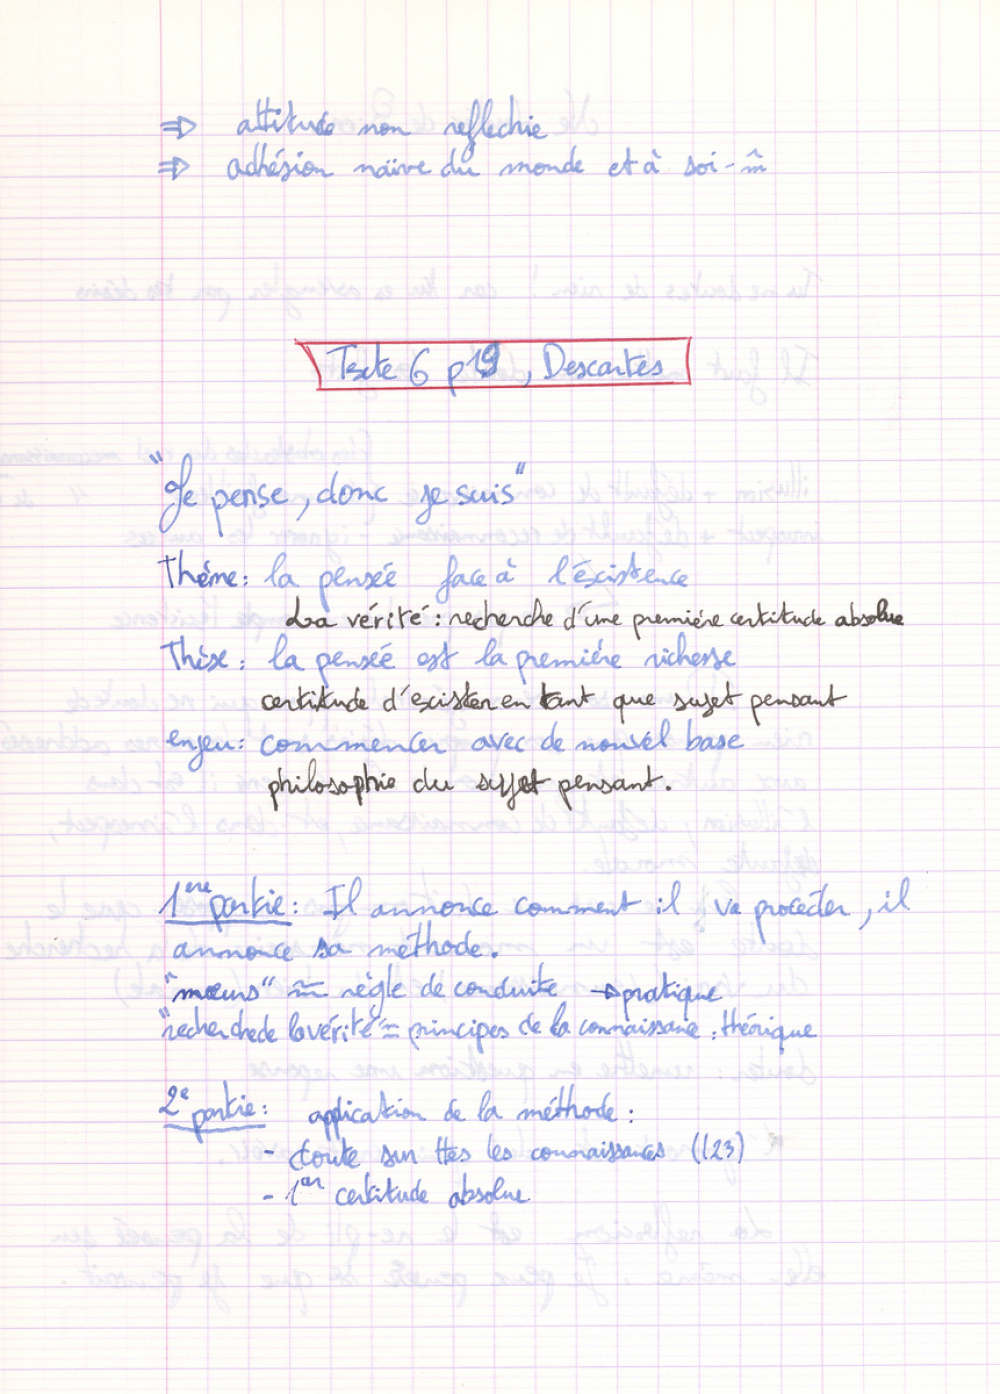 ⇒ attitude non reflechie
⇒ adhésion naïve du monde et à soi-m̂
Texte 6 p19, Descartes
"Je pense, donc je suis"
Thème: la pensée face à l'éxistence
La vérité : recherche d'une première certitude absolue
Thèse: la pensée est la première richesse
certitude d'exister en tant que sujet pensant
enjeu: commencer avec de nouvel base
philosophie du sujet pensant.
1ère partie: Il annonce comment il va procéder, il
annonce sa méthode.
"mœurs" = règle de conduite → pratique
"recherche de la vérité" = principes de la connaissance : théorique
2e partie: application de la méthode :
- doute sur ttes les connaissances (l23)
- 1er certitude absolue